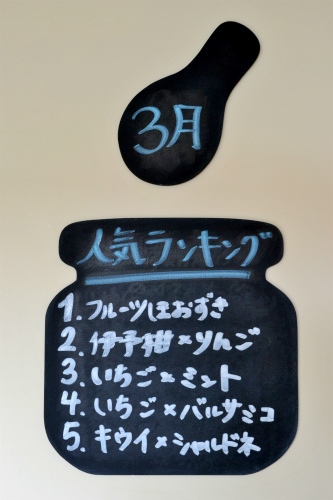 3月
人気ランキング
1. フルーツほおずき
2. 伊予柑×りんご
3. いちご×ミント
4. いちご×バルサミコ
5. キウイ×シャルドネ